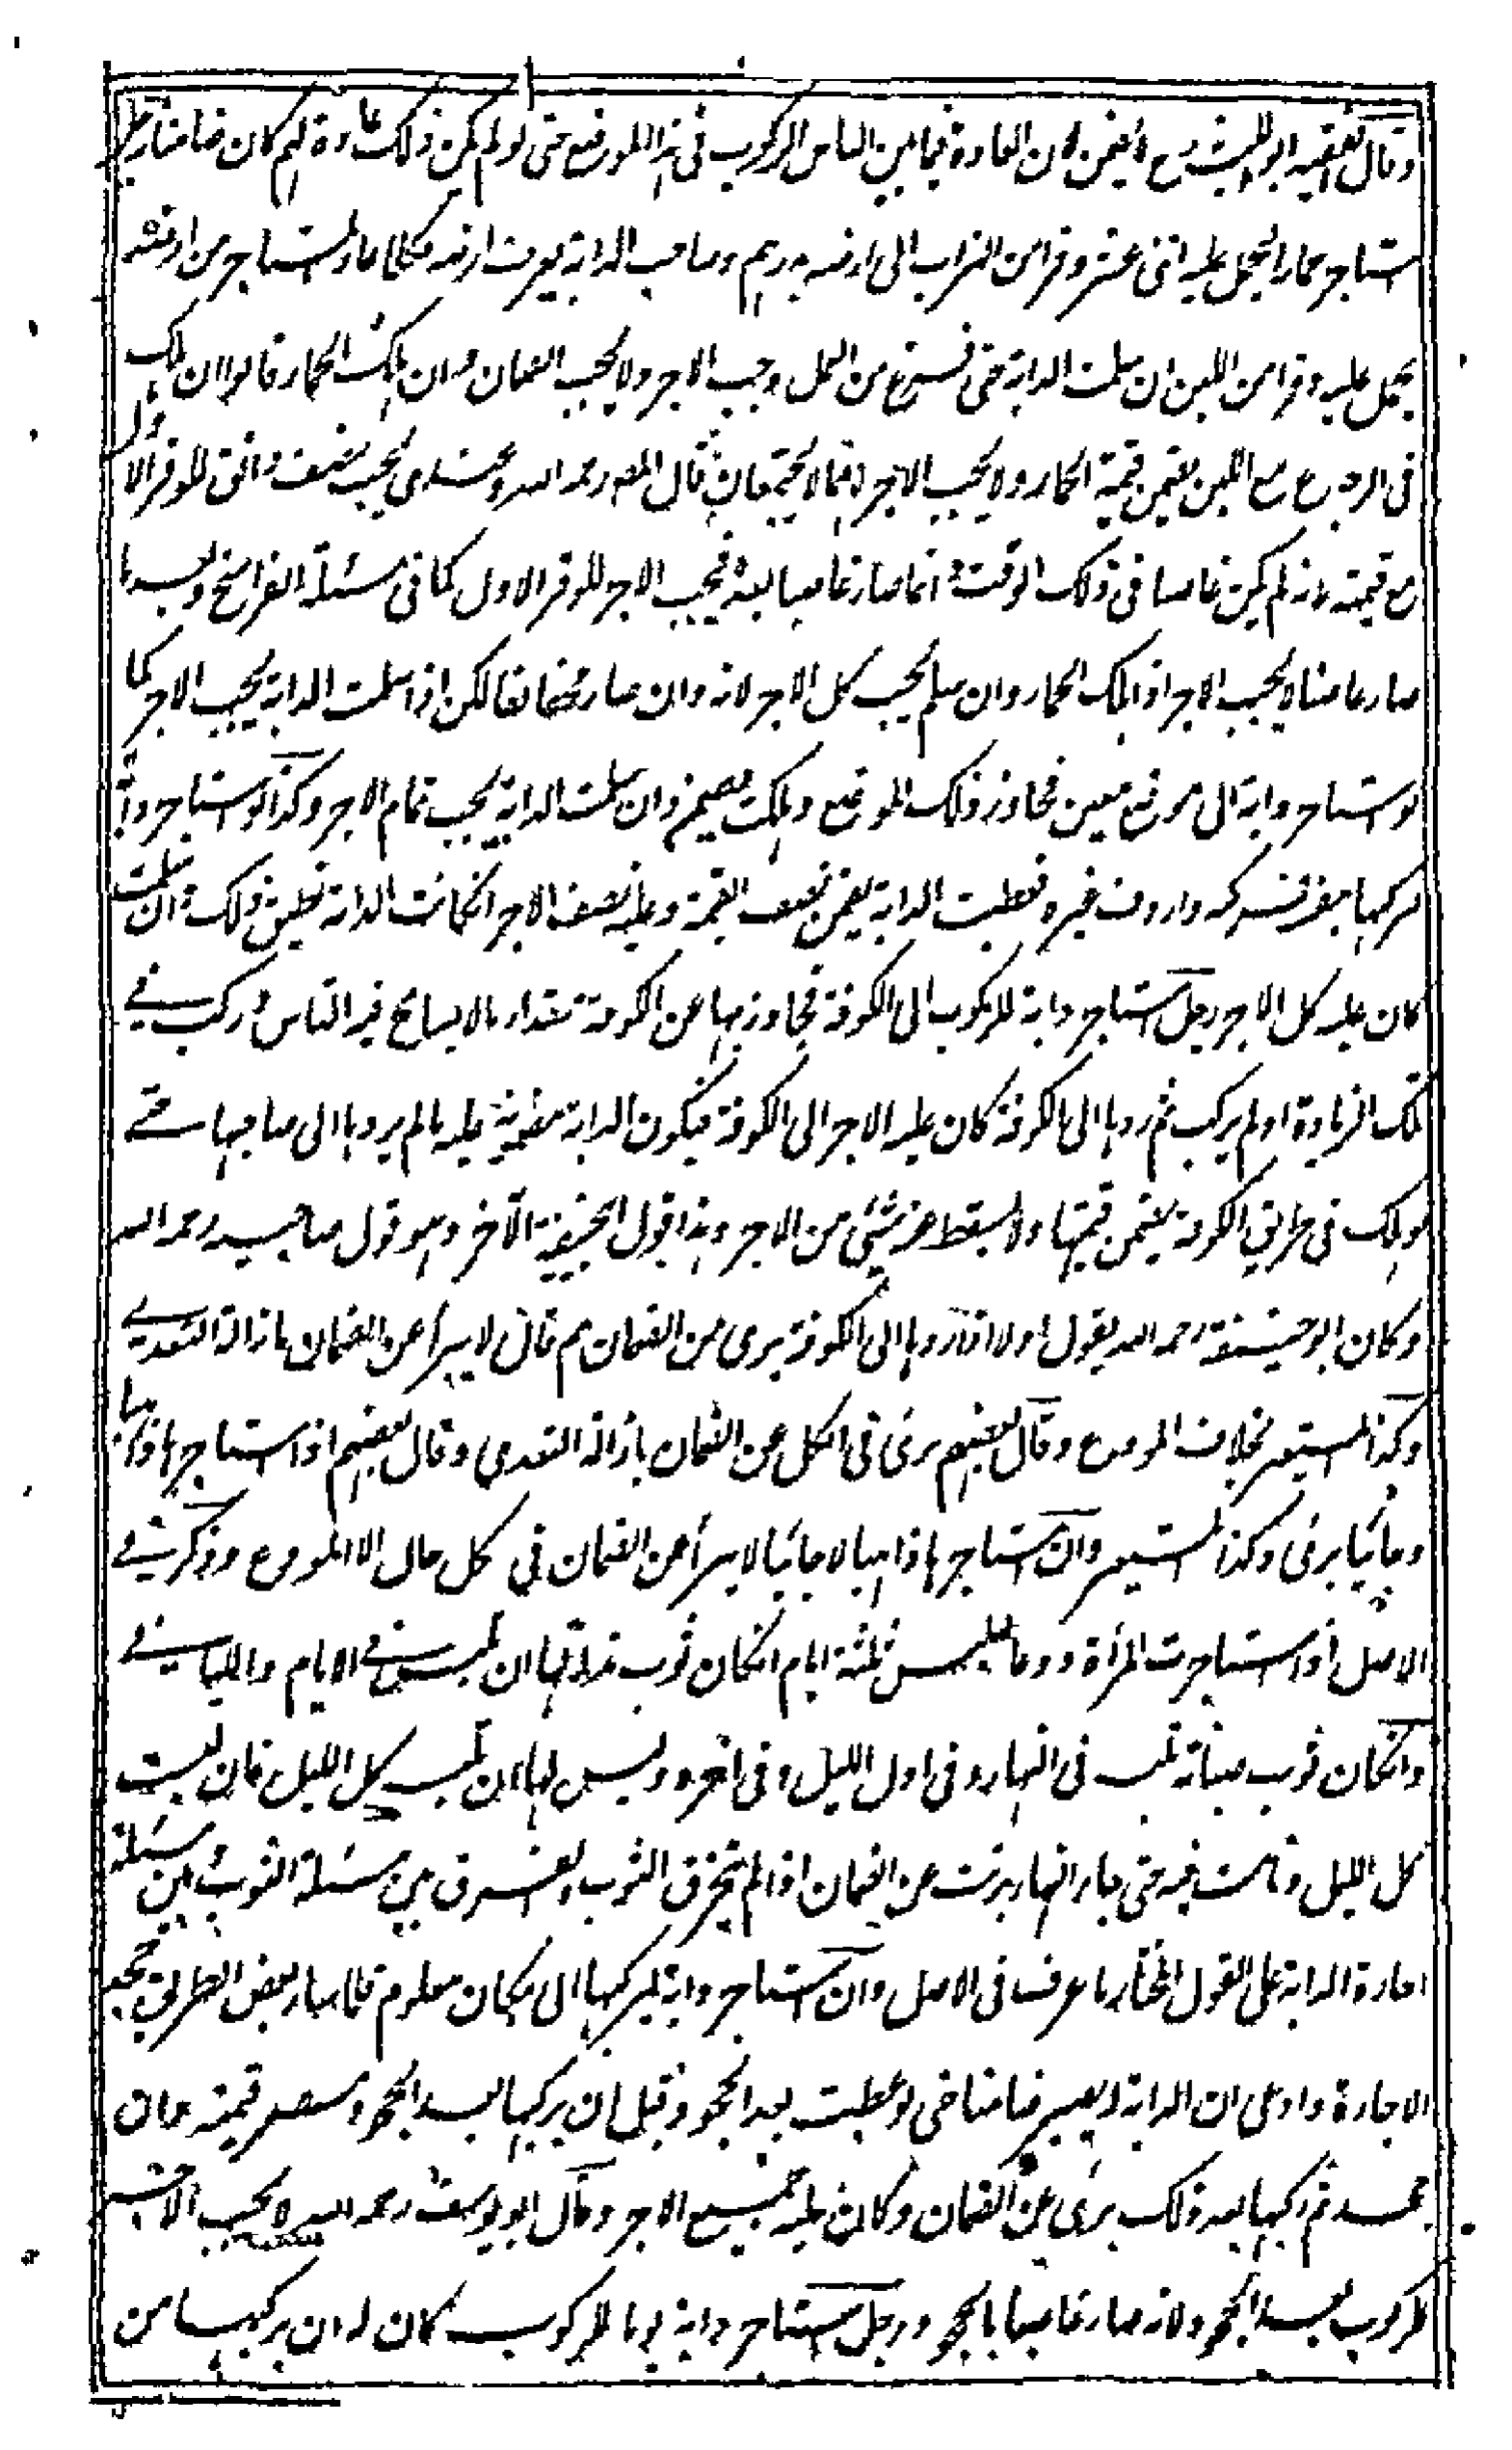 وقال الفقيه ابو الليث رح لا يضمن لان العادة فيما بين الناس الركوب في هذا الموضع حتى لو لم يكن ذلك عادة لهم كان ضامنا رجل
استاجر حمارا ليحمل عليه اثنى عشر وقرا من التراب الى ارضه بدرهم وصاحب الدابة يعرف ارضه فكلما عاد المستاجر من ارضه
يحمل عليه وقرا من اللبن ان سلمت الدابة حتى فرغ من العمل وجب الاجر ولا يجب الضمان وان هلك الحمار قالوا ان هلك
في الرجوع مع اللبن يضمن قيمة الحمار ولا يجب الاجر لانهما لا يجتمعان قال المصـ رحمه الله وعندي يجب نصف دانق للوقر الاول
مع قيمته لانه لم يكن غاصبا في ذلك الوقت وانما صار غاصبا بعده فيجب الاجر للوقر الاول كما في مسئلة الفراسخ وبعد ما
صار ضامنا لا يجب الاجر اذا هلك الحمار وان سلم يجب كل الاجر لانه وان صار مخالفا لكن اذا سلمت الدابة يجب الاجر كما
لو استاجر دابة الى موضع معين فجاوز ذلك الموضع وهلكت يضمن وان سلمت الدابة يجب تمام الاجر وكذا لو استاجر دابة
ليركبها بنفسه فركبه واردف غيره فعطبت الدابة يضمن نصف القيمة وعليه نصف الاجر انكانت الدابة تطيق ذلك وان سلمت
كان عليه كل الاجر رجل استاجر دابة للركوب الى الكوفة فجاوز بها عن الكوفة مقدار ما لا يسامح فيه الناس وركب في
تلك الزيادة او لم يركب ثم ردها الى الكوفة كان عليه الاجر الى الكوفة فيكون الدابة مضمونة عليه ما لم يردها الى صاحبها حتى
لو هلك في طريق الكوفة يضمن قيمتها ولا يسقط عنه شئ من الاجر وهذا قول ابيحنيفة الآخر وهو قول صاحبيه رحمه الله
وكان ابو حنيفة رحمه الله يقول اولا اذا ردها الى الكوفة برى من الضمان ثم قال لا يبرأ عن الضمان بازالة التعدي
وكذا المستعير بخلاف المودع وقال بعضهم برئ في الكل عن الضمان بازالة التعدي وقال بعضهم اذا استاجرها ذاهبا
وجائيا برئ وكذا المستعير وان استاجرها ذاهبا لا جائيا لا يبرأ عن الضمان في كل حال الا المودع وذكر في
الاصل اذا استاجرت المرأة درعا لتلبس ثلثة ايام انكان ثوب بذلة لها ان تلبس في الايام والليالي
وانكان ثوب صيانة تلبس في النهار وفي اول الليل وفي اخره وليس لها ان تلبس كل الليل فان لبست
كل الليل ونامت فيه حتى جاء النهار برئت عن الضمان اذا لم يتخرق الثوب والفرق بين مسئلة الثوب وبين مسئلة
اعارة الدابة على القول المختار ما عرف في الاصل وان استاجر دابة ليركبها الى مكان معلوم فلما سار بعض الطريق جحد
الاجارة وادعى ان الدابة له يصير ضامنا حتى لو عطبت بعد الجحود قبل ان يركبها بعد الجحود يضمن قيمته فان
جحد ثم ركبها بعد ذلك برئ عن الضمان وكان عليه جميع الاجر وقال ابو يوسف رحمه الله لا يجب الاجر
للركوب بعد الجحود لانه صار غاصبا بالجحود رجل استاجر دابة يوما للركوب كان له ان يركبها من